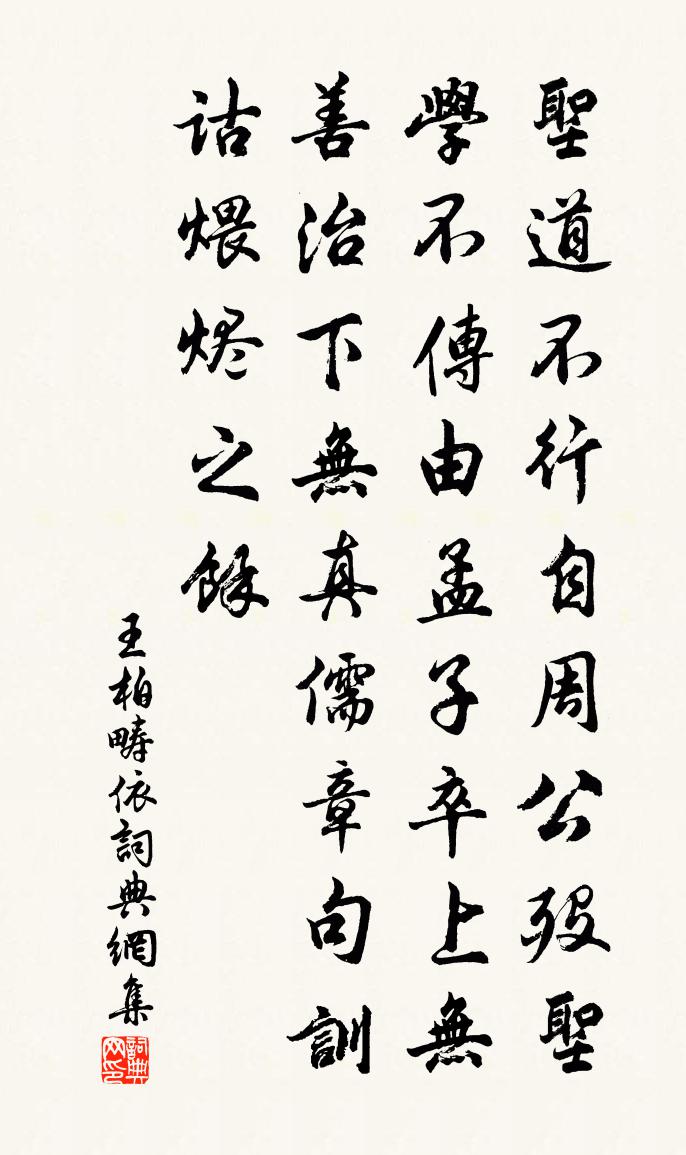 聖道不行自周公歿聖
學不傳由孟子卒上無
善治下無真儒章句訓
詁煨烬之餘
王柏疇依詞典網集
詞典网印